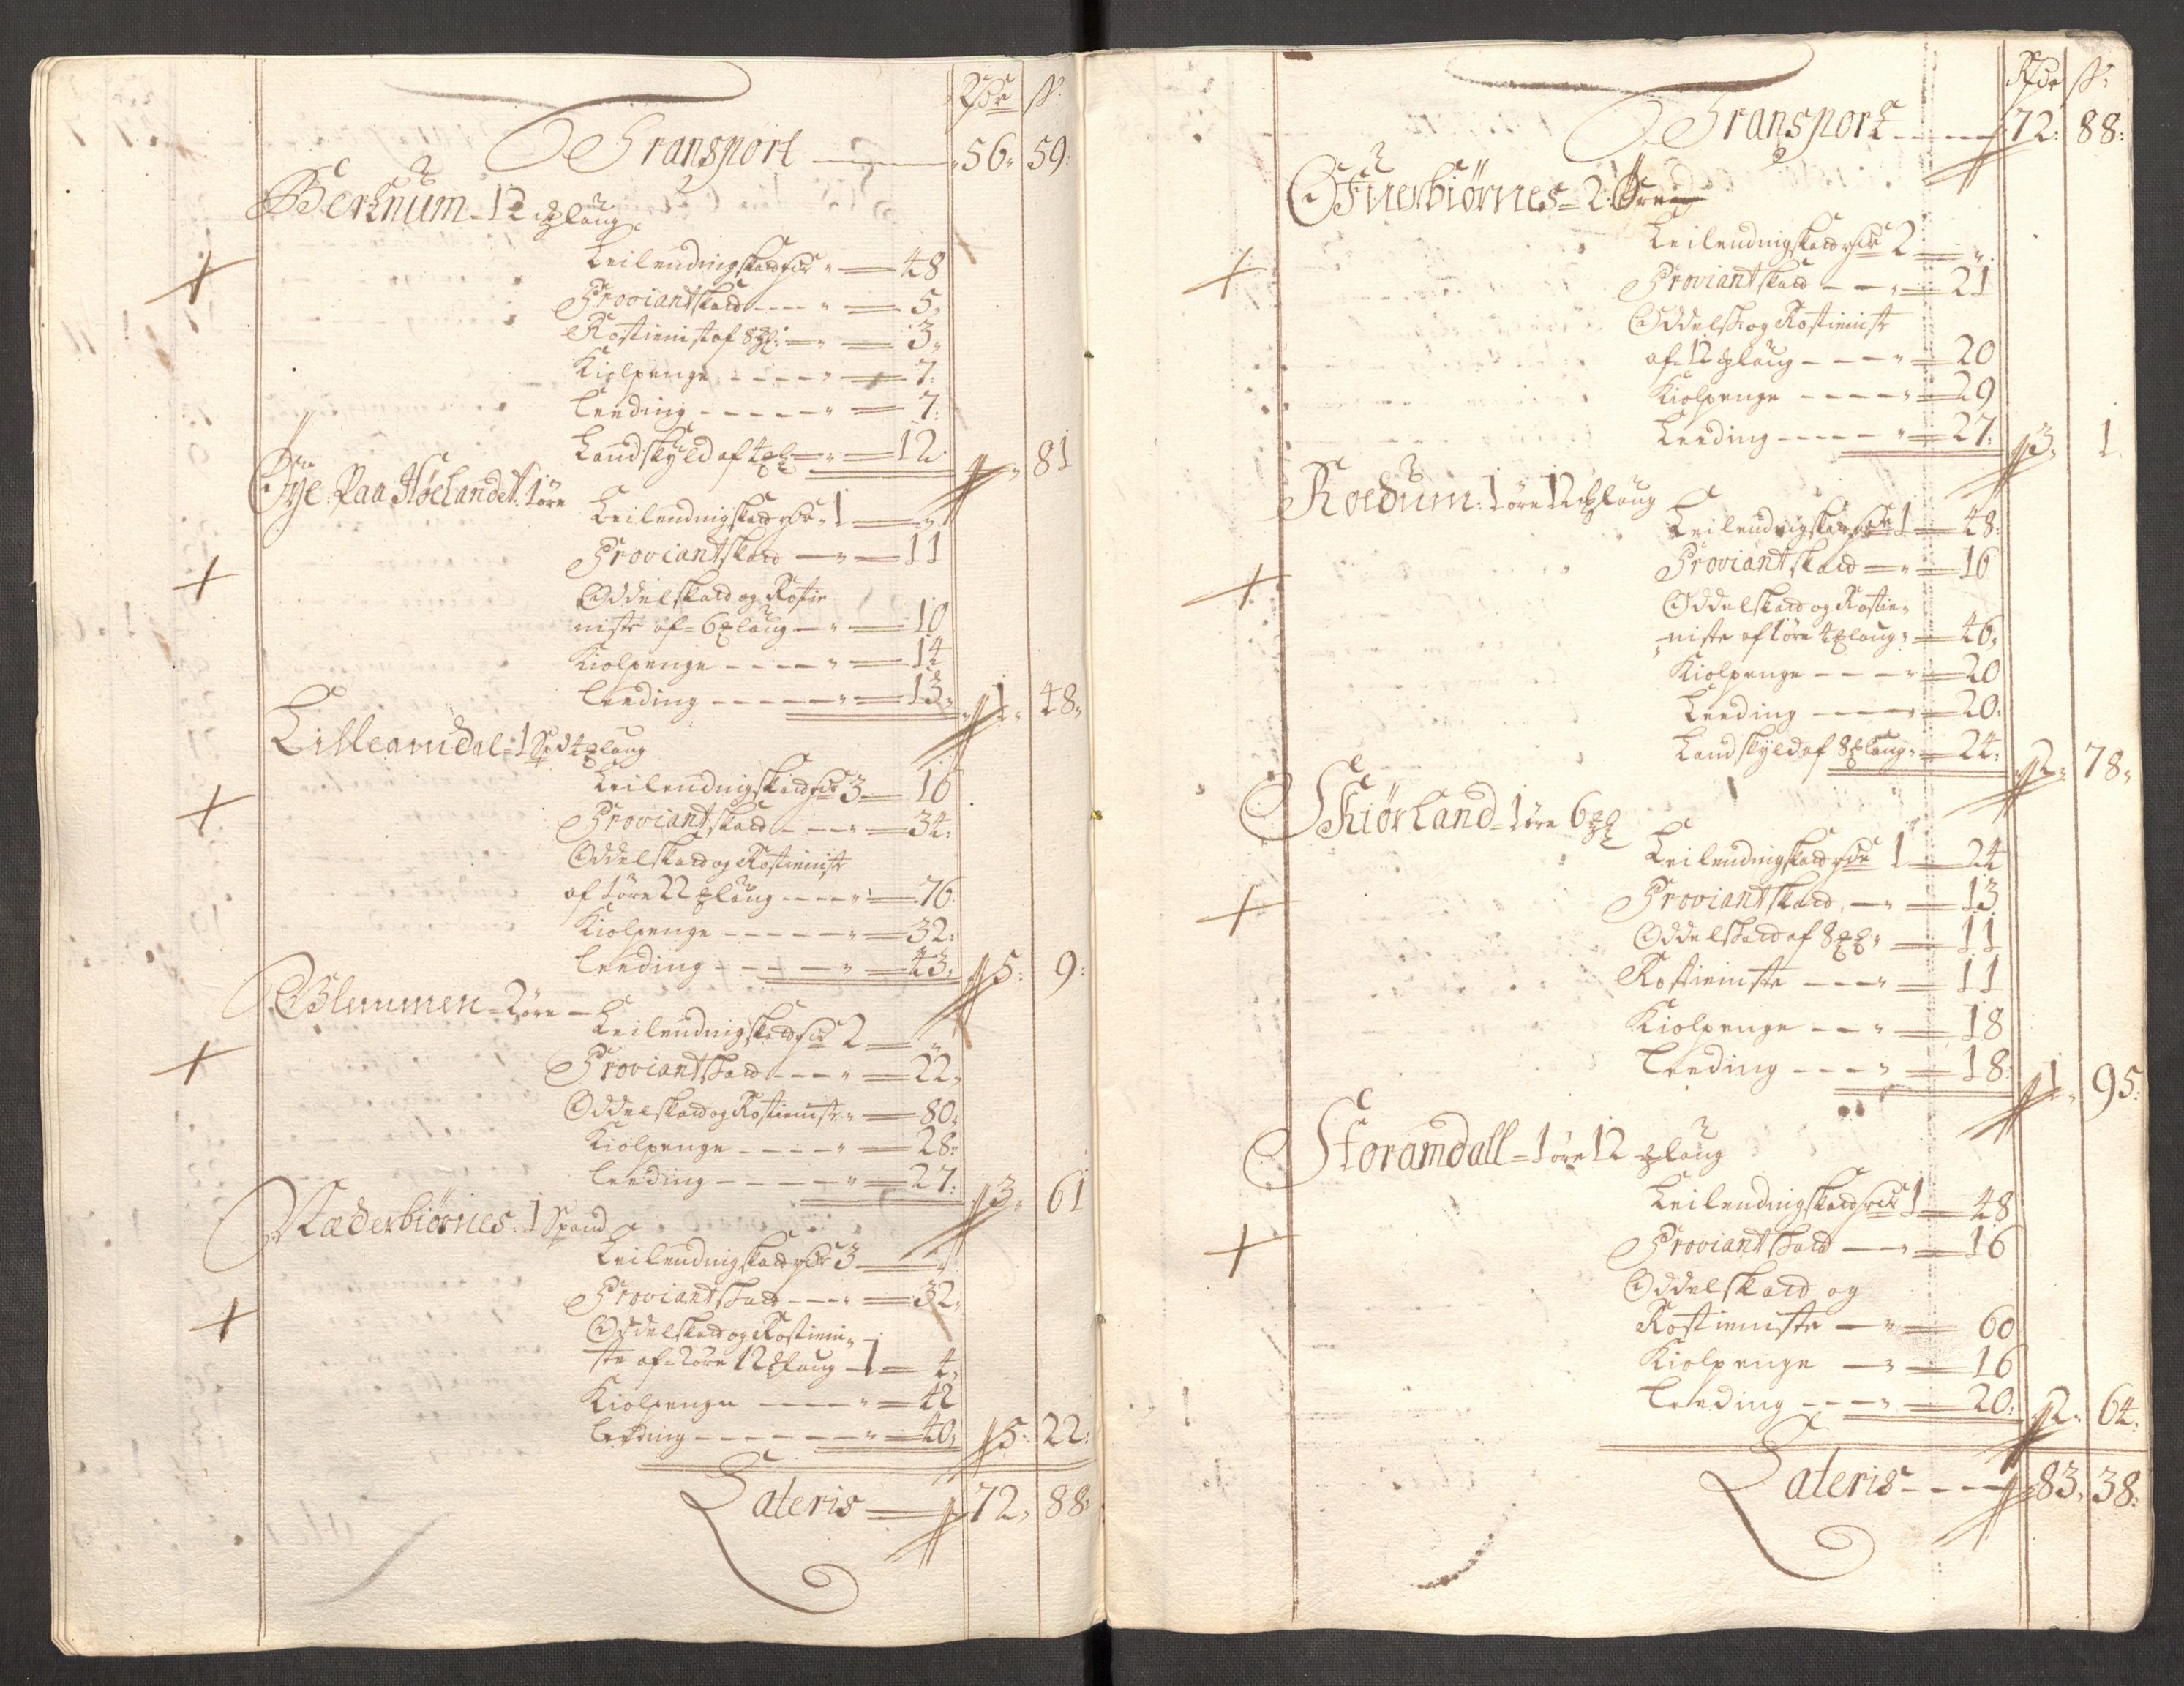 Rdr ß:
Transport — 56" 59:
Berknum - 12 ꝑlaug
Leilendingskatt rdr " — 48
Proviantskatt - - - " — 5"
Rostieniste af 8 ꝑl: — " — 3"
Kiolpenge - - - - " — 7:
Leeding - - - - - " — 7:
Landskyld af 4 ꝑl — " — 12 " 81
Øye Paa Høelandet 1 øre
Leilendingskatt rdr " 1 — "
Proviantskatt — " — 11
Oddelskatt og Rostie
niste af = 6 ꝑlaug — " — 10
Kiolpenge - - - - " — 14
Leeding - - - - - " — 13" 1" 48"
Lillearndal = 1 Spd 4 ꝑlaug
Leilendingskatt rdr 3 — 16
Proviantskatt - - - " — 34:
Oddelskatt og Rostieniste
af 1 øre 22 ꝑlaug - - - - " — 76
Kiolpenge - - - - - " — 32:
Leeding - - - - - " — 43" 5: 9:
Blemmen = 2 øre —
Leilendingskatt rdr 2 — "
Proviantskatt - - - " — 22"
Oddelskatt og Rostieniste " — 80"
Kiolpenge - - - - " — 28:
Leeding - - - - - " — 27: 3" 61
Næderbiørnes: 1 Spand
Leilendingskatt rdr 3 — "
Proviantskatt - - - " — 32"
Oddelskatt og Rostieni"
ste af = 2 øre 12 ꝑlaug — 1 — 4"
Kiolpenge - - - - " — 42
Leeding - - - - - - " — 40" 5: 22:
Lateris — 72" 88:
Rdr ß:
Transport - - - - 72: 88:
Øfuerbiørnes = 2 Øre
Leilendingskatt rdr 2 — "
Proviantskatt - - " — 21
Oddelsk: og Rostieniste
af 12 ꝑlaug - - - - " — 20
Kiolpenge - - - - " — 29
Leeding - - - - - " — 27: 3" 1
Roedum: 1 øre 12 ꝑlaug
Leilendingskatt rdr 1 — 48:
Proviantskatt — " — 16
Oddelskatt og Rostie"
niste af 1 øre 4 ꝑlaug " — 46"
Kiolpenge - - - - " — 20
Leeding - - - - " — 20:
Landskyld af 8 ꝑlaug " — 24: 2" 78"
Skiørland = 1 øre 6 ꝑl
Leilendingskatt rdr 1 — 24
Proviantskatt, — " — 13
Oddelskatt af 8 ꝑl " — 11
Rostieniste - - - " — 11
Kiolpenge - - - " — 18
Leeding - - - - " — 18: 1" 95:
Storamdall = 1 øre 12 ꝑlaug
Leilendingskatt rdr 1 — 48
Proviantskatt — " — 16
Oddelskatt og
Rostieniste — " — 60
Kiolpenge — " — 16
Leeding - - - - " — 20: 2" 64:
Lateris - - - 83" 38: